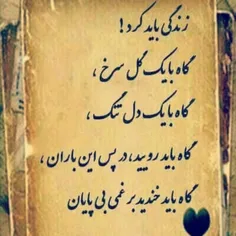 زندگی باید کرد!
گاه با یک گل سرخ،
گاه با یک دل تنگ،
گاه باید رویید، در پس این باران،
گاه باید خندید بر غمی بی پایان